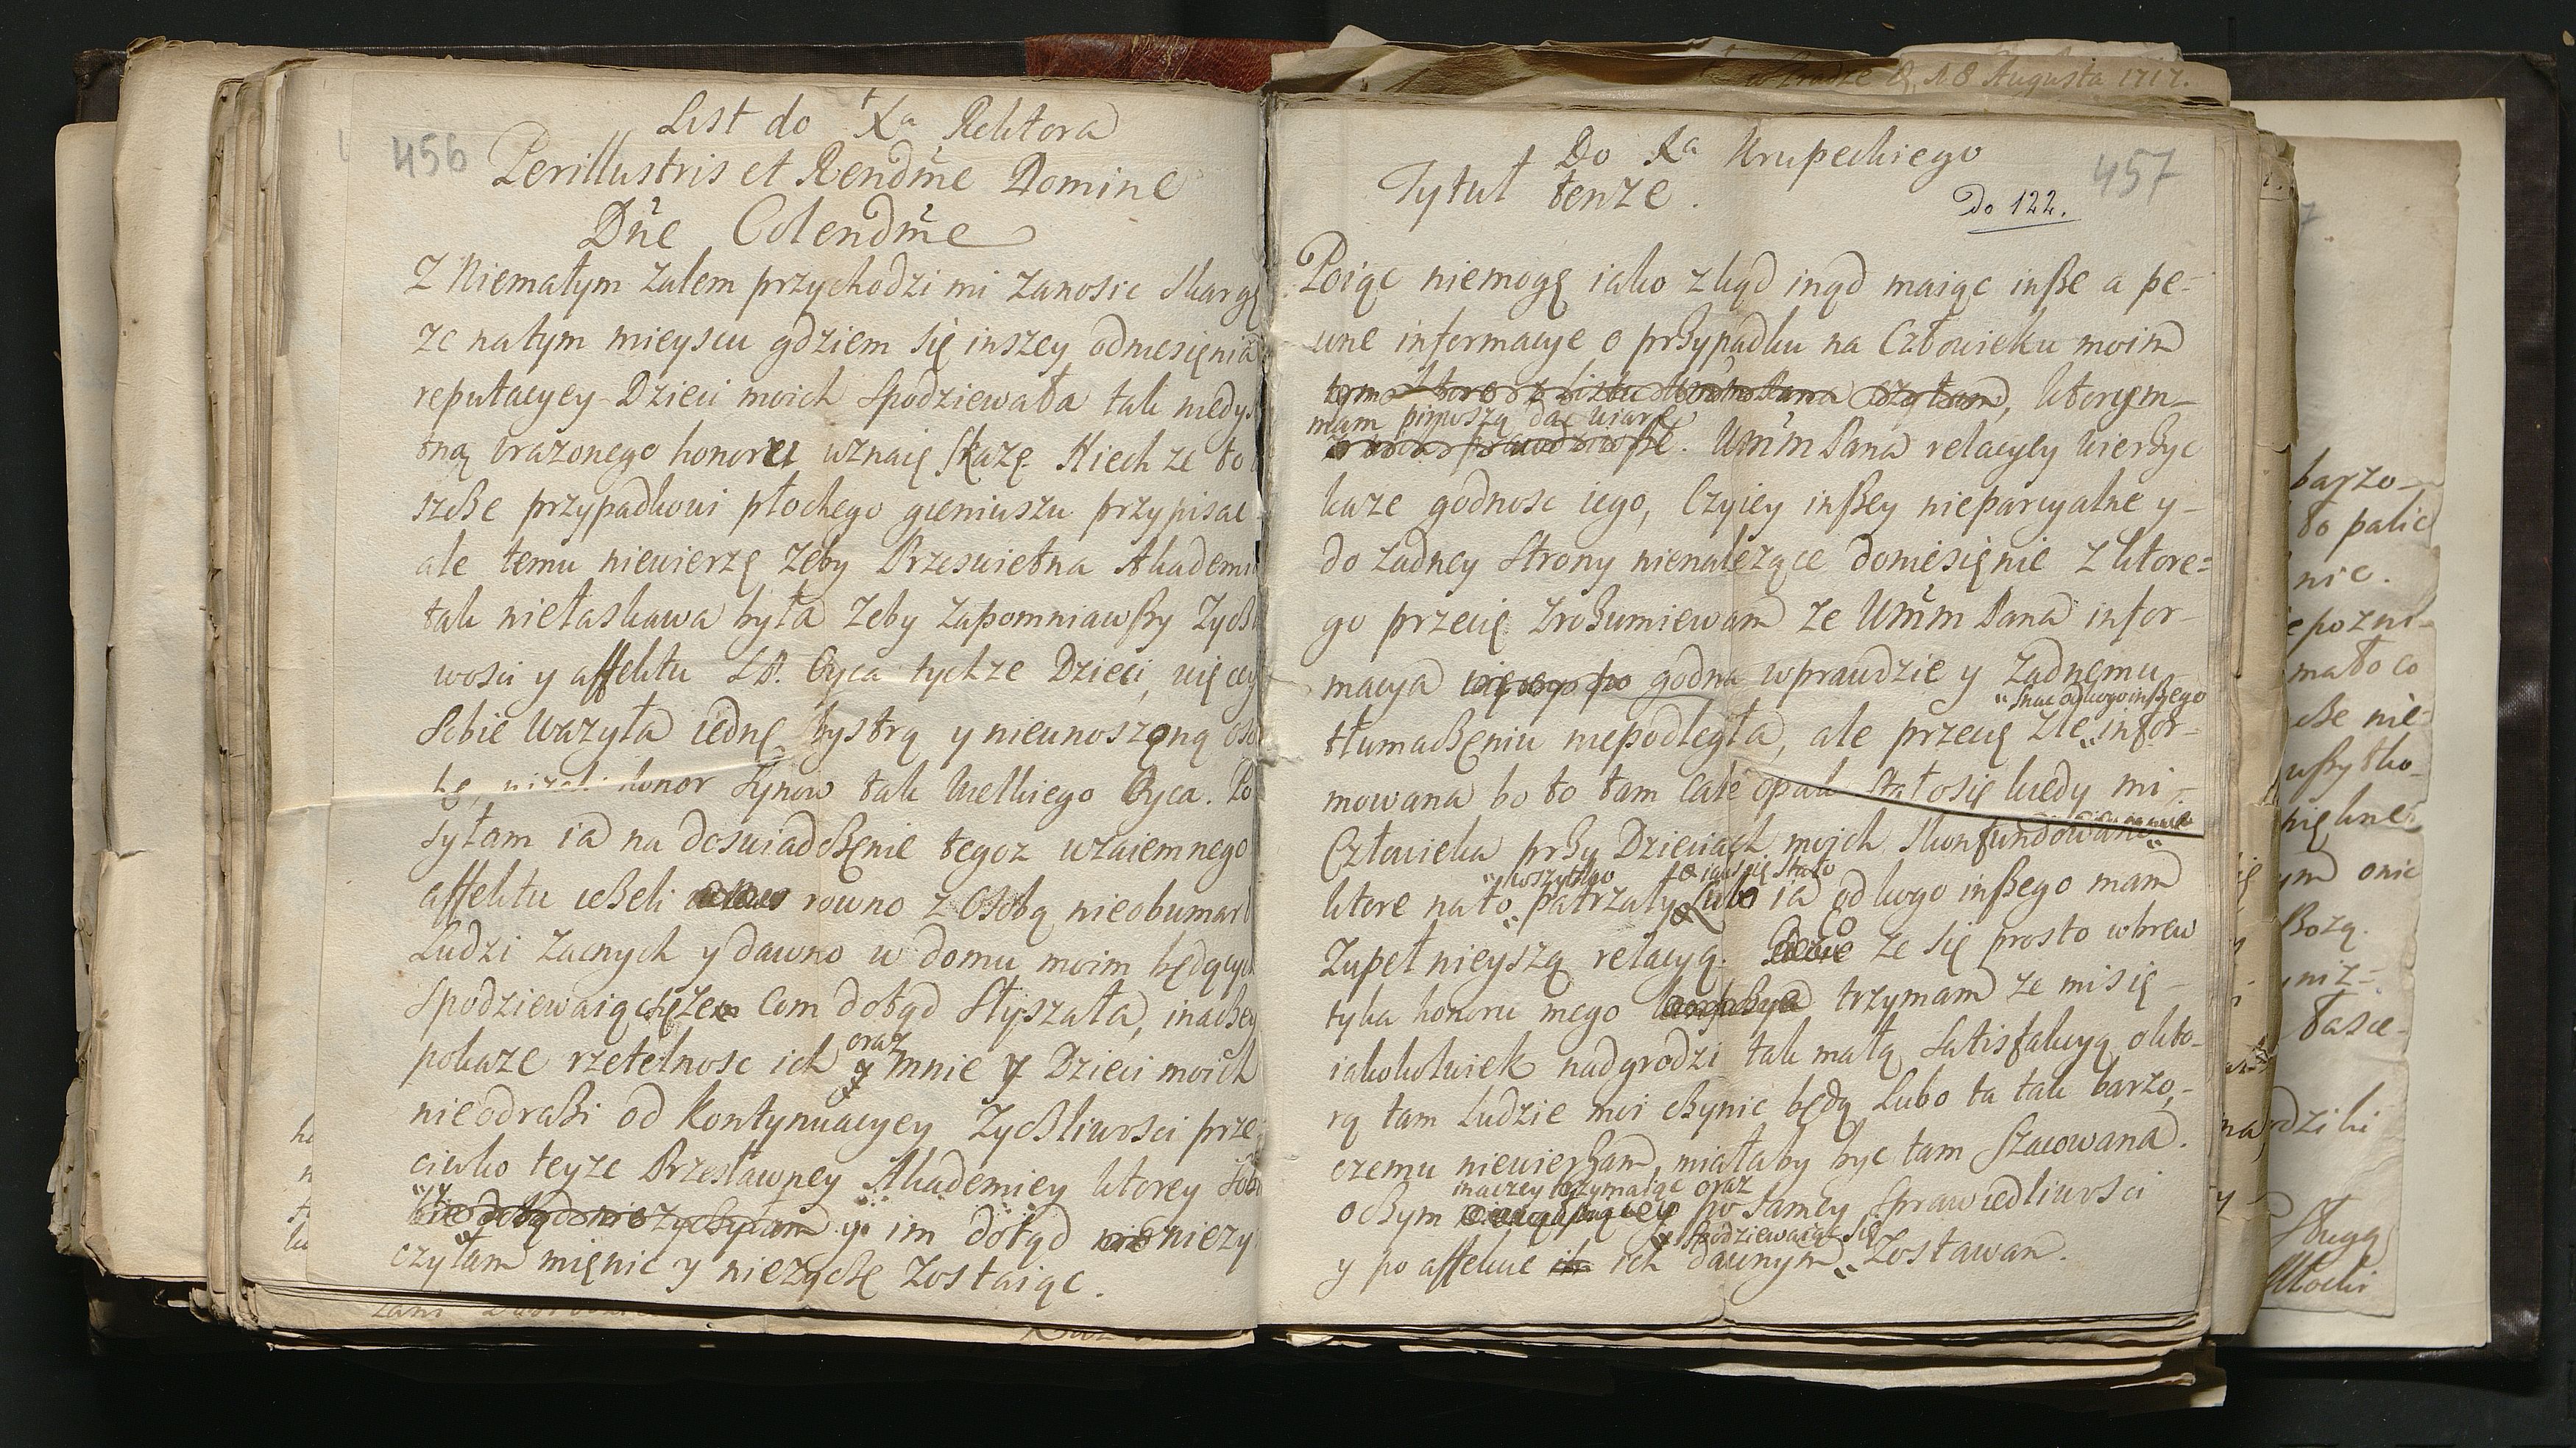 456
List do Xa Rektora
Perillustris et Rendme Domine
Dne Colendme
Z Niemałym żalem przychodzi mi zanosic skargę
ze natym mieyscu gdziem się inszey odniesięnia
reputacyey Dzieci moich spodziewała tak niedys
tną vrażonego honoru uznaię skazę. Niech ze to
szcße przypadkowi płochego gieniuszu przypisac
ale temu niewierzę zeby Przeswietna Akademi
tak niełaskawa była zeby zapomniawßy zycß
wosci y affektu S.P. Oyca tychze Dzieci, więcey
sobie wazyła iednę bystrą y nieunoszoną oso
bę, nizeli honor synow tak wielkiego Oyca. Po
syłam ia na doswiadcßęnie tegoz wzaiemnego
affektu iesßeli rowno z osobą nieobumarł
Ludzi zacnych y dawno w domu moim będących
spodziewaiąc się ze com dotąd słyszała, inacßey
pokaze rzetelnosc ich oraz y mnie y Dzieci moich
nieodraßi od kontynuacyey zycßliwosci prze
ciwko teyze Przesławney Akademiey ktorey sobi
y im dotąd niezy
czyłam mięnic y niezyczę zostaiąc.
w Pradze D. A 8 Augusta 1717.
457
Do Xa Krupeckiego
Tytuł tenze.
Do 122.
Poiąc niemogę iako zkąd inąd maiąc inße a pe-
wne informacye o przypadku na Człowieku moim
ktorym-
mam pierwszą dac wiarę
Umm Pana relacyey wierßyc
kaze godnosc iego, Czyiey inßey nieparcyalne y-
do żadney strony nienależące doniesięnie z ktore=
go przecię zroßumiewam ze Umm Pana infor-
macya godna wprawdzie y żadnemu
snac od kogo inßego
tłumacßęniu niepodległa, ale przecię zle infor-
mowana bo to tam całe opak stało się kiedy mi
Człowieka przy Dzieciach moich skonfundowano
y koszytego to iak się stało
ktore na to patrzały Lubo ia od kogo inßego mam
zupełnieyszą relacyą. Co ze się prosto wbrew
tyka honoru mego trzymam ze mi się
iakokolwiek nadgrodzi tak małą satisfakcyą okto-
rą tam Ludzie moi cßynic będą Lubo ta tak barzo,-
czemu niewierßam, miałaby byc tam szacowana.
inaczey trzymaiąc oraz
ocßym po samey sprawiedliwosci
spodziewaiąc się
y po affekcie ich dawnym zostawam.
barzo-
to palic
nic.
epozni-
mało co
cße nie-
ußytko-
pięknei
ym onic
Bozą.
łasce-
rdziki
Sługa